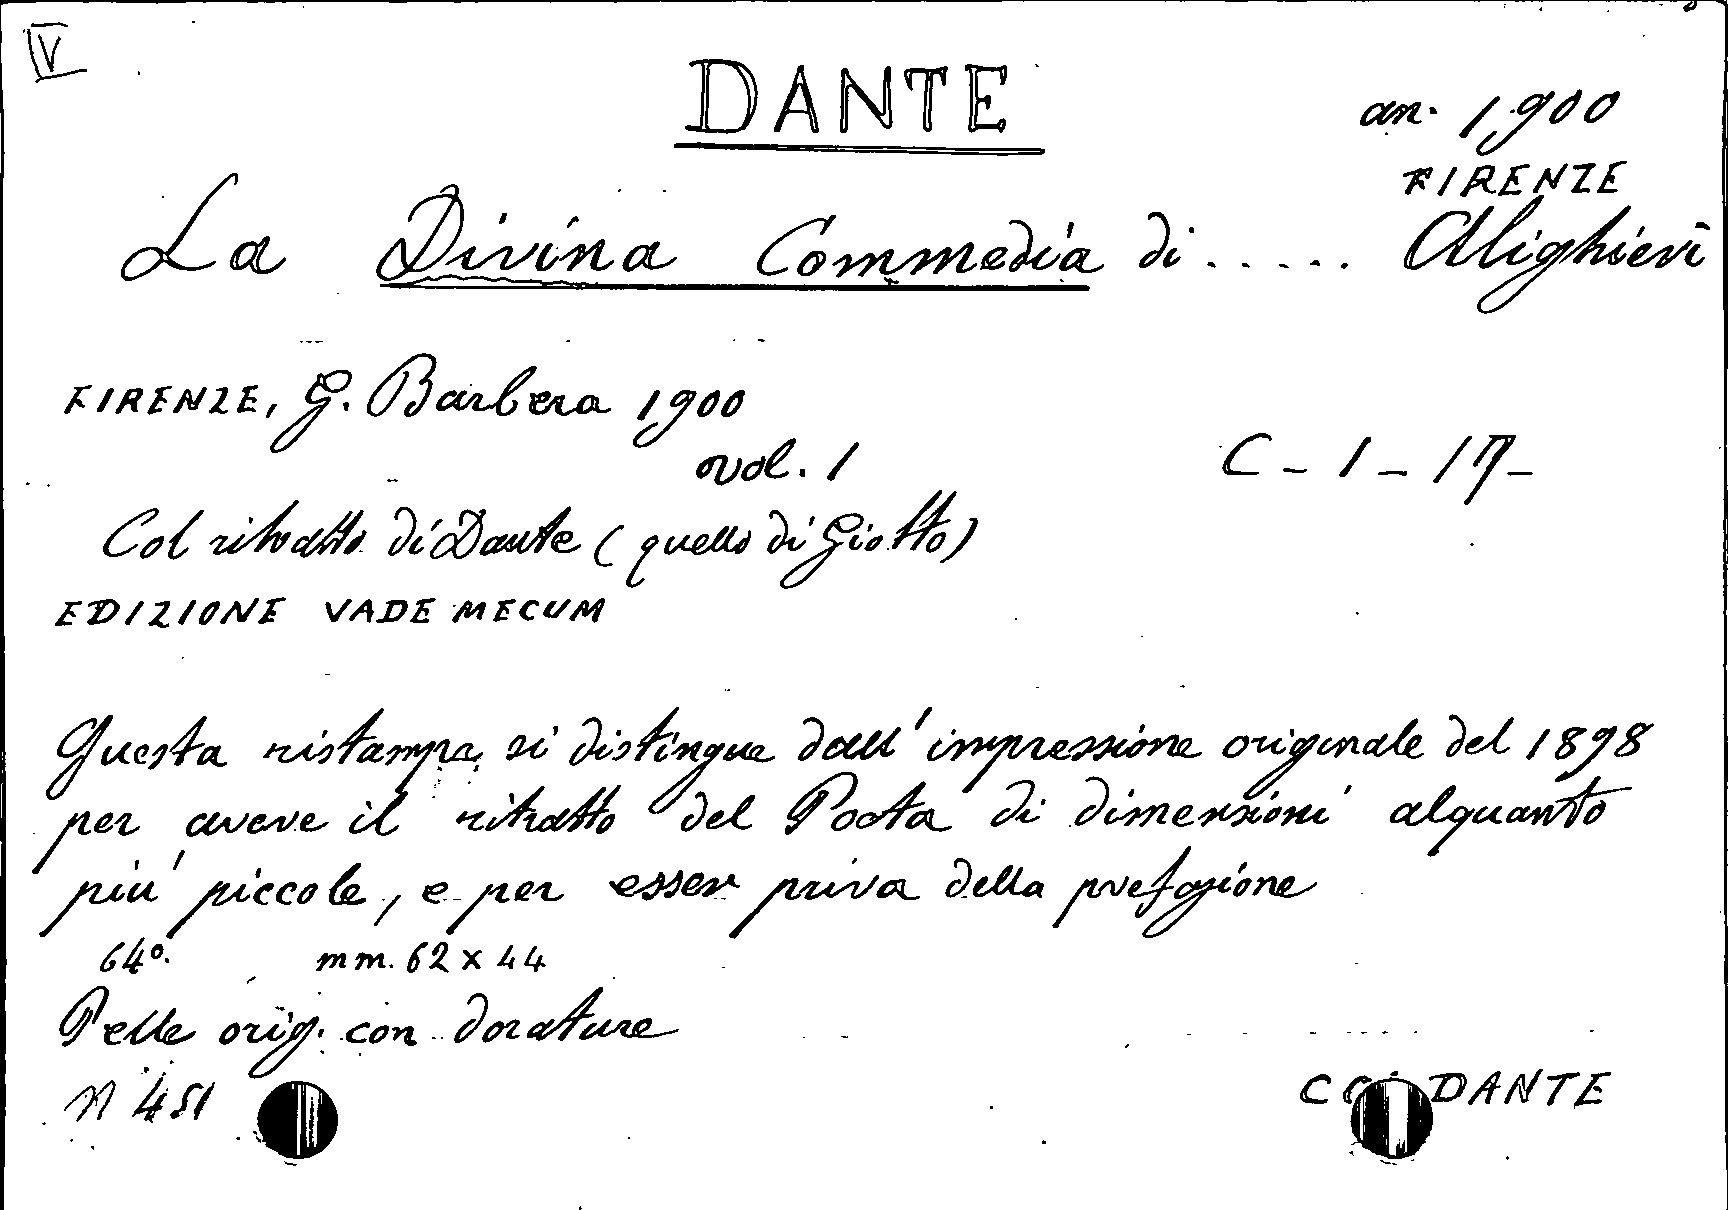 V
DANTE
an. 1900
FIRENZE
La Divina Commedia di ..... Alighieri
FIRENZE, G. Barbera 1900
vol. 1
C - 1 - 17 -
Col ritratto di Dante (quello di Giotto)
EDIZIONE VADE MECUM
Questa ristampa si distingue dall'impressione originale del 1898
per avere il ritratto del Poeta di dimensioni alquanto
più piccole, e per esser priva della prefazione
64°. mm. 62 x 44
Pelle orig. con dorature
N 451
DANTE